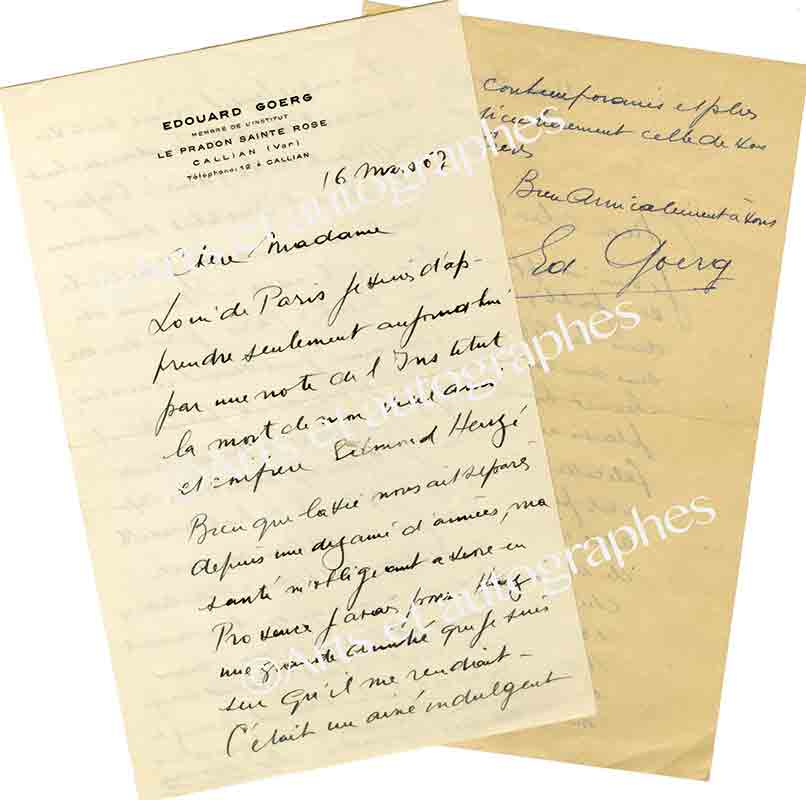 EDOUARD GOERG
MEMBRE DE L'INSTITUT
LE PRADON SAINTE ROSE
CALLIAN (Var)
Téléphone: 12 à CALLIAN
16 Mars 67
Chère Madame
Loin de Paris je viens d'ap-
prendre seulement aujourd'hui
par une note de l'Institut
la mort de mon vieil ami
et confrère Edmond Heuzé
Bien que la vie nous ait séparés
depuis une dizaine d'années, ma
santé m'obligeant à vivre en
Provence j'avais pour
une grande amitié que je suis
sûr qu'il me rendrait -
C'était un aîné indulgent
contemporains et plus
celle de vos
Bien amicalement à vous
Ed Goerg
©Arts et autographes
©Arts et autographes
©Arts et autographes